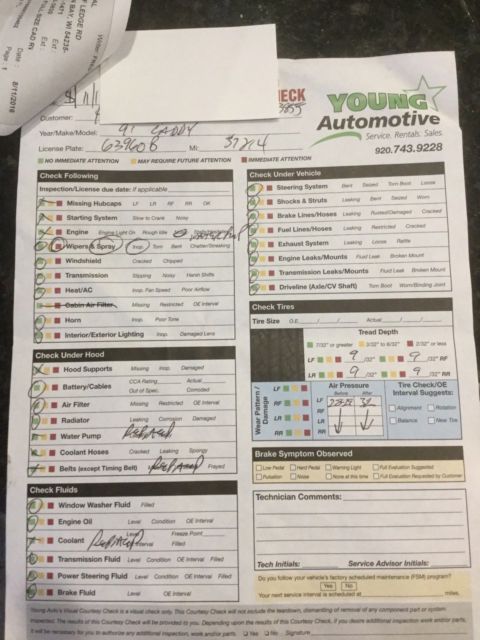 LEDGE RD
BAY, WI 54235-
Ext :
Ext :
Date : 8/11/2018
Page 1
Customer:
YOUNG
Automotive
Service. Rentals. Sales.
920.743.9228
Year/Make/Model: 91 CADDY
License Plate: 639608 Mi: 37214
NO IMMEDIATE ATTENTION MAY REQUIRE FUTURE ATTENTION IMMEDIATE ATTENTION
Check Following
Inspection/License due date: if applicable
Missing Hubcaps LF LR RF RR OK
Starting System Slow to Crank Noisy
Engine Engine Light On Rough Idle
Wipers & Spray Inop. Torn Bent Chatter/Streaking
Windshield Cracked Chipped
Transmission Slipping Noisy Harsh Shifts
Heat/AC Inop. Fan Speed Poor Airflow
Cabin Air Filter Missing Restricted OE Interval
Horn Inop. Poor Tone
Interior/Exterior Lighting Inop. Damaged Lens
Check Under Hood
Hood Supports Missing Inop. Damaged
Battery/Cables CCA Rating Actual
Out of Spec. Corroded
Air Filter Missing Restricted OE Interval
Radiator Leaking Corrosion Damaged
Water Pump REPLACED
Coolant Hoses Cracked Leaking Spongy
Belts (except Timing Belt) REPLACED Frayed
Check Fluids
Window Washer Fluid Filled
Engine Oil Level Condition OE Interval
Coolant REPLACED Freeze Point
Interval Filled
Transmission Fluid Level Condition OE Interval Filled
Power Steering Fluid Level Condition OE Interval Filled
Brake Fluid Level Condition OE Interval Filled
Check Under Vehicle
Steering System Bent Seized Torn Boot Loose
Shocks & Struts Leaking Bent Seized Worn
Brake Lines/Hoses Leaking Rusted/Damaged Cracked
Fuel Lines/Hoses Leaking Restricted Cracked
Exhaust System Leaking Loose Rattle
Engine Leaks/Mounts Fluid Leak Broken Mount
Transmission Leaks/Mounts Fluid Leak Broken Mount
Driveline (Axle/CV Shaft) Torn Boot Worn/Binding Joint
Check Tires
Tire Size O.E. / / Actual / /
Tread Depth
7/32" or greater 3/32" to 6/32" 2/32" or less
LF 9 /32" 9 /32" RF
LR 9 /32" 9 /32" RR
Wear Pattern / Damage
LF
RF
LR
RR
Air Pressure
Before After
LF
RF
LR
RR
Tire Check/OE
Interval Suggests:
Alignment Rotation
Balance New Tire
Brake Symptom Observed
Low Pedal Hard Pedal Warning Light Full Evaluation Suggested
Pulsation Noise None at this time Full Evaluation Requested by Customer
Technician Comments:
Tech Initials: Service Advisor Initials:
Do you follow your vehicle's factory scheduled maintenance (FSM) program?
Yes No
Your next service interval is scheduled at miles.
Young Auto's Visual Courtesy Check is a visual check only. This Courtesy Check will not include the teardown, dismantling of removal of any component part or system
inspected. The results of this Courtesy Check will be provided to you. Depending upon the results of this Courtesy Check, if you desire additional inspection work and/or parts,
it will be necessary for you to authorize any additional inspection, work and/or parts. Yes No Signature